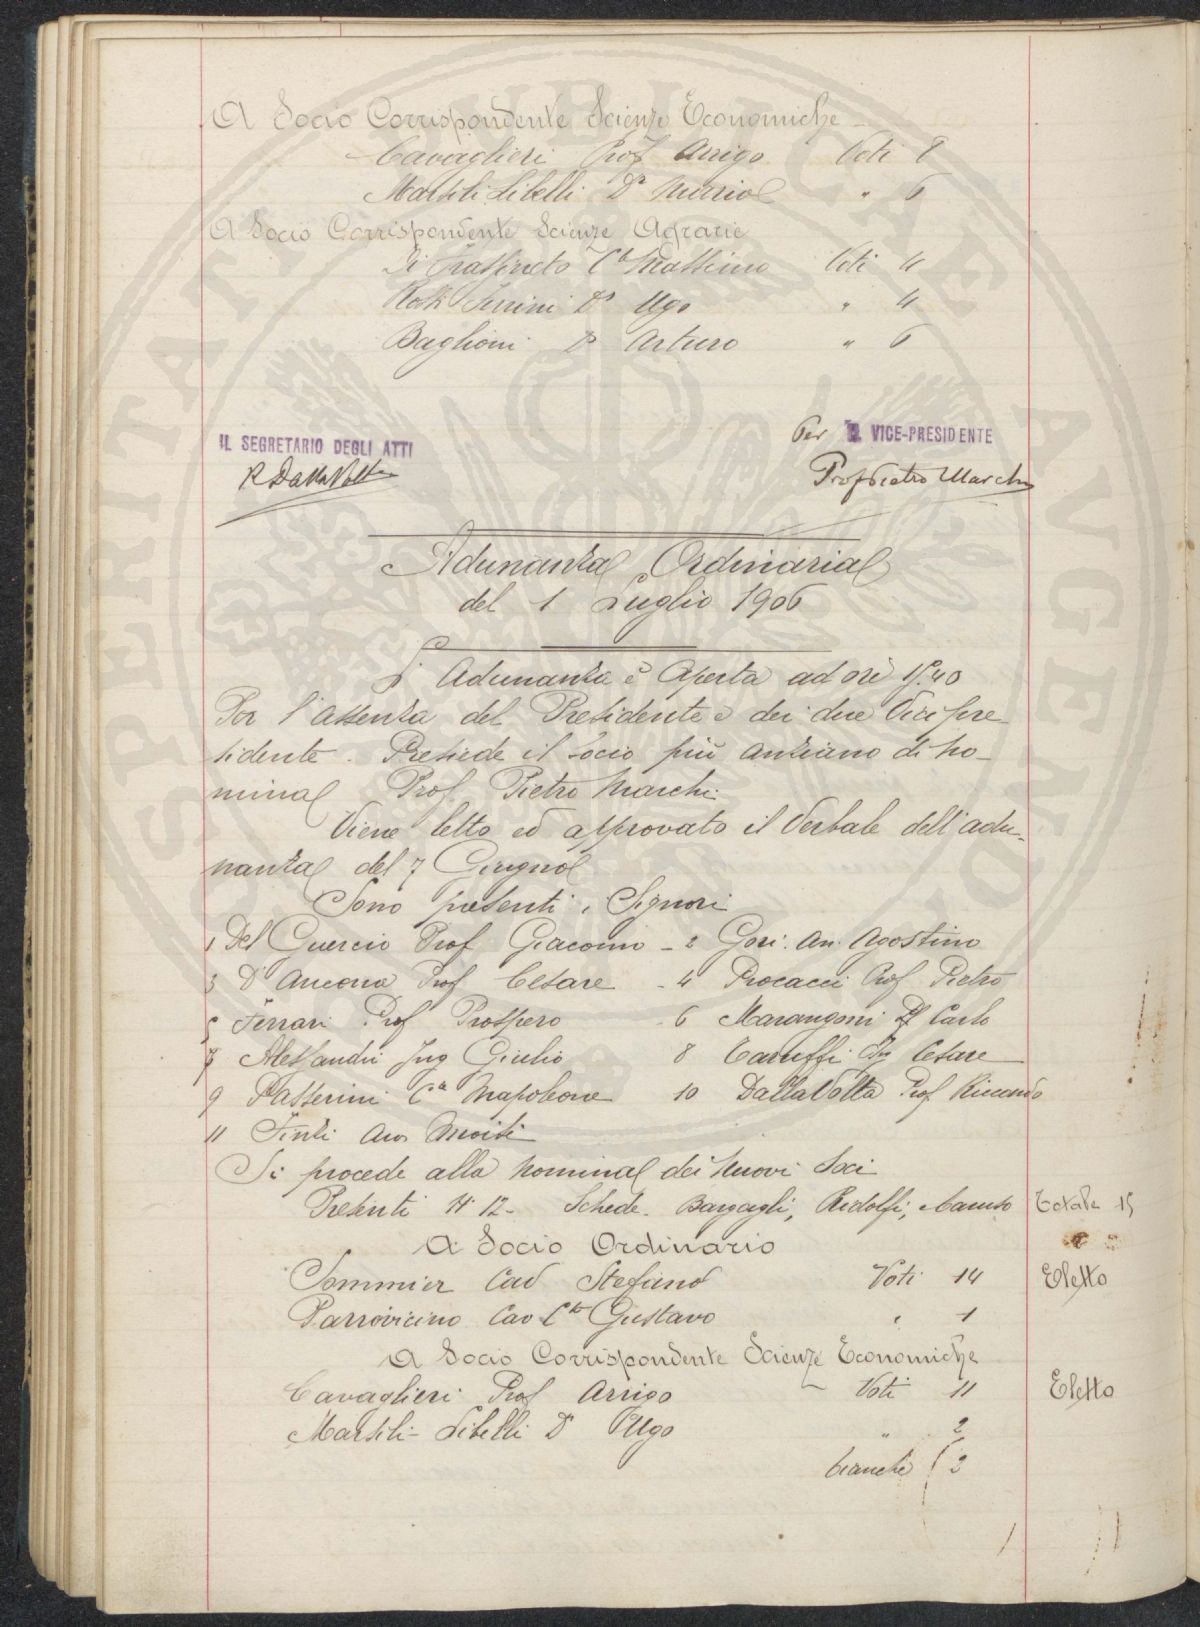 A Socio Corrispondente Scienze Economiche
Cavaglieri Prof Arrigo Voti 8
Marsili Libelli Dr Mario " 6
A Socio Corrispondente Scienze Agrarie
Di Frassineto Cte Massimo Voti 4
Dr Ugo " 4
Baglioni Dr Arturo " 6
IL SEGRETARIO DEGLI ATTI
R DallaVolta
Per IL VICE-PRESIDENTE
Prof Pietro Marchi
Adunanza Ordinaria
del 1 Luglio 1906
L'Adunanza è Aperta ad ore 15,40
Per l'assenza del Presidente e dei due Vicipre-
sidente. Presiede il Socio più anziano di no-
mina Prof. Pietro Marchi
Viene letto ed approvato il Verbale dell'adu-
nanza del 7 Giugno
Sono presenti i Signori
1 Del Guercio Prof Giacomo - 2 Gori. An. Agostino
3 D'Ancona Prof Cesare - 4 Procacci Prof Pietro
5 Ferrari Prof Prospero 6 Marangoni Pf Carlo
7 Alessandri Ing Giulio 8 Caruffi Ing Cesare
9 Passerini Cte Napoleone 10 DallaVolta Prof Riccardo
11 Finzi Avv Moisè
Si procede alla nomina dei nuovi Soci
Presenti N 12 - Schede - Bargagli, Ridolfi, Caruso Totale 15
A Socio Ordinario
Sommier Cav Stefano Voti 14 Eletto
Parrovicino Cav Cte Gustavo " 1
A Socio Corrispondente Scienze Economiche
Cavaglieri Prof Arrigo Voti 11 Eletto
Marsili-Libelli Dr Ugo " 2
bianche 2
SPERITATI VETUSTAE AVGENDO